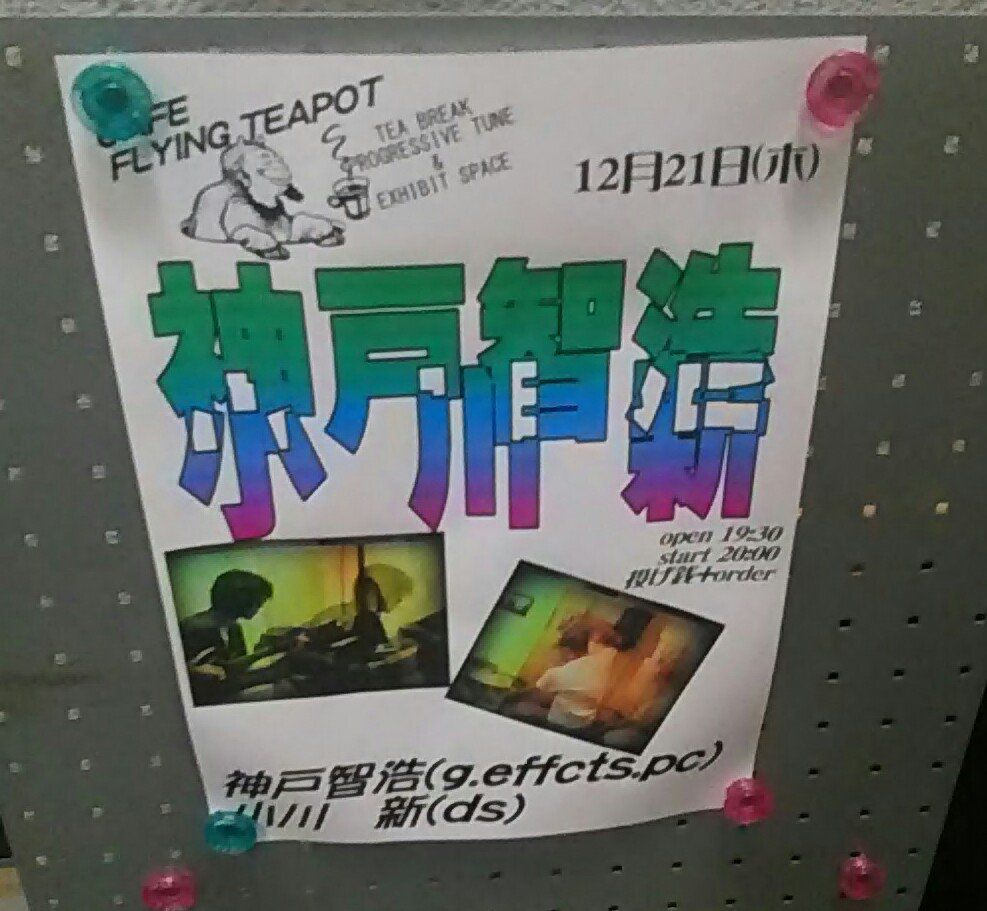 CAFE
FLYING TEAPOT
TEA BREAK
PROGRESSIVE TUNE
&
EXHIBIT SPACE
12月21日(木)
神戸智浩
小川 新
open 19:30
start 20:00
投げ銭+order
神戸智浩(g.effcts.pc)
小川 新(ds)